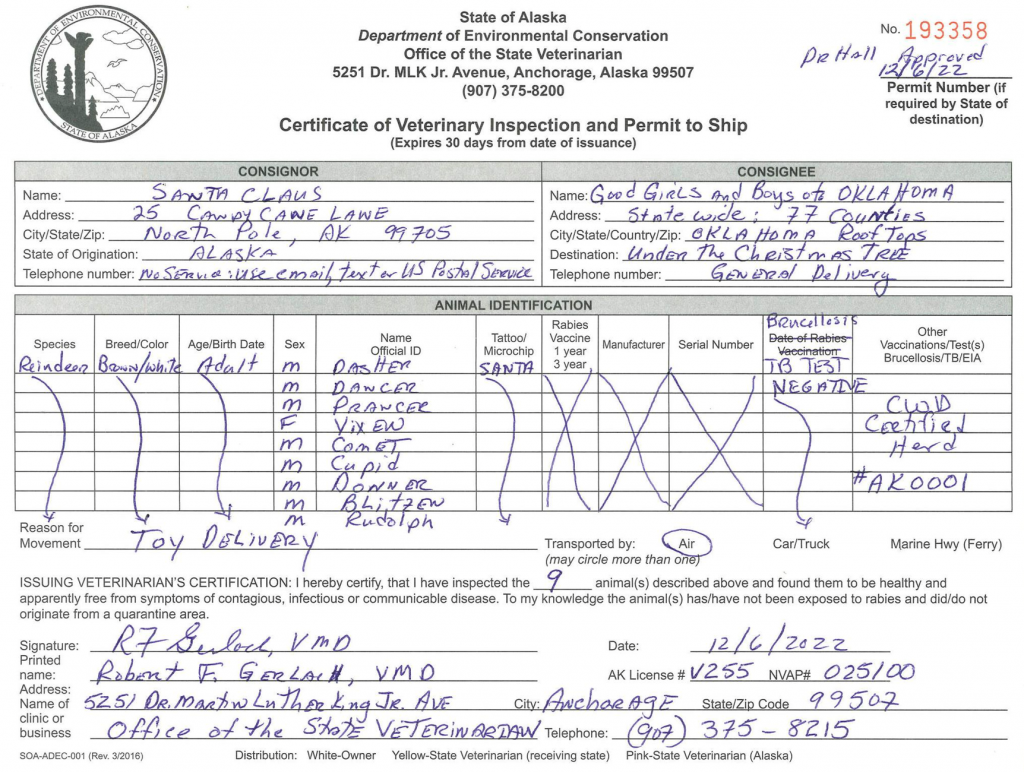 DEPARTMENT OF ENVIRONMENTAL CONSERVATION
STATE OF ALASKA
State of Alaska
Department of Environmental Conservation
Office of the State Veterinarian
5251 Dr. MLK Jr. Avenue, Anchorage, Alaska 99507
(907) 375-8200
No. 193358
Dr Hall Approved
12/6/22
Permit Number (if
required by State of
destination)
Certificate of Veterinary Inspection and Permit to Ship
(Expires 30 days from date of issuance)
CONSIGNOR
Name: SANTA CLAUS
Address: 25 CANDY CANE LANE
City/State/Zip: North Pole, AK 99705
State of Origination: ALASKA
Telephone number: No Service: Use email, text or US Postal Service
CONSIGNEE
Name: Good Girls and Boys of OKLAHOMA
Address: State wide: 77 Counties
City/State/Country/Zip: OKLAHOMA Roof Tops
Destination: Under the Christmas TREE
Telephone number: GENERAL Delivery
ANIMAL IDENTIFICATION
Species Breed/Color Age/Birth Date Sex Name Official ID Tattoo/Microchip Rabies Vaccine 1 year 3 year Manufacturer Serial Number Brucellosis Date of Rabies Vaccination Other Vaccinations/Test(s) Brucellosis/TB/EIA
Reindeer Brown/White Adult m DASHER SANTA TB TEST
m DANCER NEGATIVE
m PRANCER CWD
F VIXEN Certified
m COMET Herd
m Cupid
m DONNER #AK0001
m BLITZEN
m Rudolph
Reason for
Movement TOY DELIVERY
Transported by: Air Car/Truck Marine Hwy (Ferry)
(may circle more than one)
ISSUING VETERINARIAN'S CERTIFICATION: I hereby certify, that I have inspected the 9 animal(s) described above and found them to be healthy and
apparently free from symptoms of contagious, infectious or communicable disease. To my knowledge the animal(s) has/have not been exposed to rabies and did/do not
originate from a quarantine area.
Signature: RF Gerlach, VMD Date: 12/6/2022
Printed
name: Robert F. GERLACH, VMD AK License # V255 NVAP# 025100
Address: 5251 Dr. Martin Luther King Jr. Ave City: Anchorage State/Zip Code 99507
Name of
clinic or
business Office of the State VETERINARIAN Telephone: (907) 375-8215
SOA-ADEC-001 (Rev. 3/2016) Distribution: White-Owner Yellow-State Veterinarian (receiving state) Pink-State Veterinarian (Alaska)